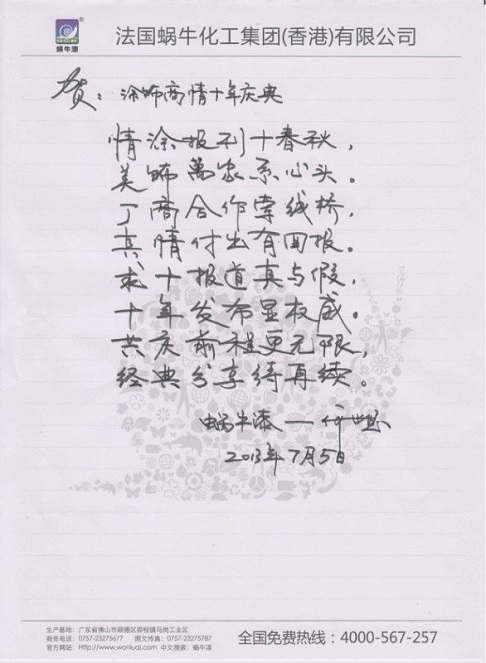 蜗牛漆
法国蜗牛化工集团(香港)有限公司
贺：涂饰商情十年庆典
情涂报刊十春秋，
美饰万家系心头。
丁商合作牵线桥，
真情付出有回报。
求十报道真与假，
十年发布显权威。
共庆前程更无限，
经典分享待再续。
蜗牛漆—何
2013年7月5日
生产基地：广东省佛山市顺德区容桂镇马岗工业区
商务电话：0757-23275677 图文传真：0757-23275787
官方网站：Http://www.woniuqi.com 中文搜索：蜗牛漆
全国免费热线：4000-567-257